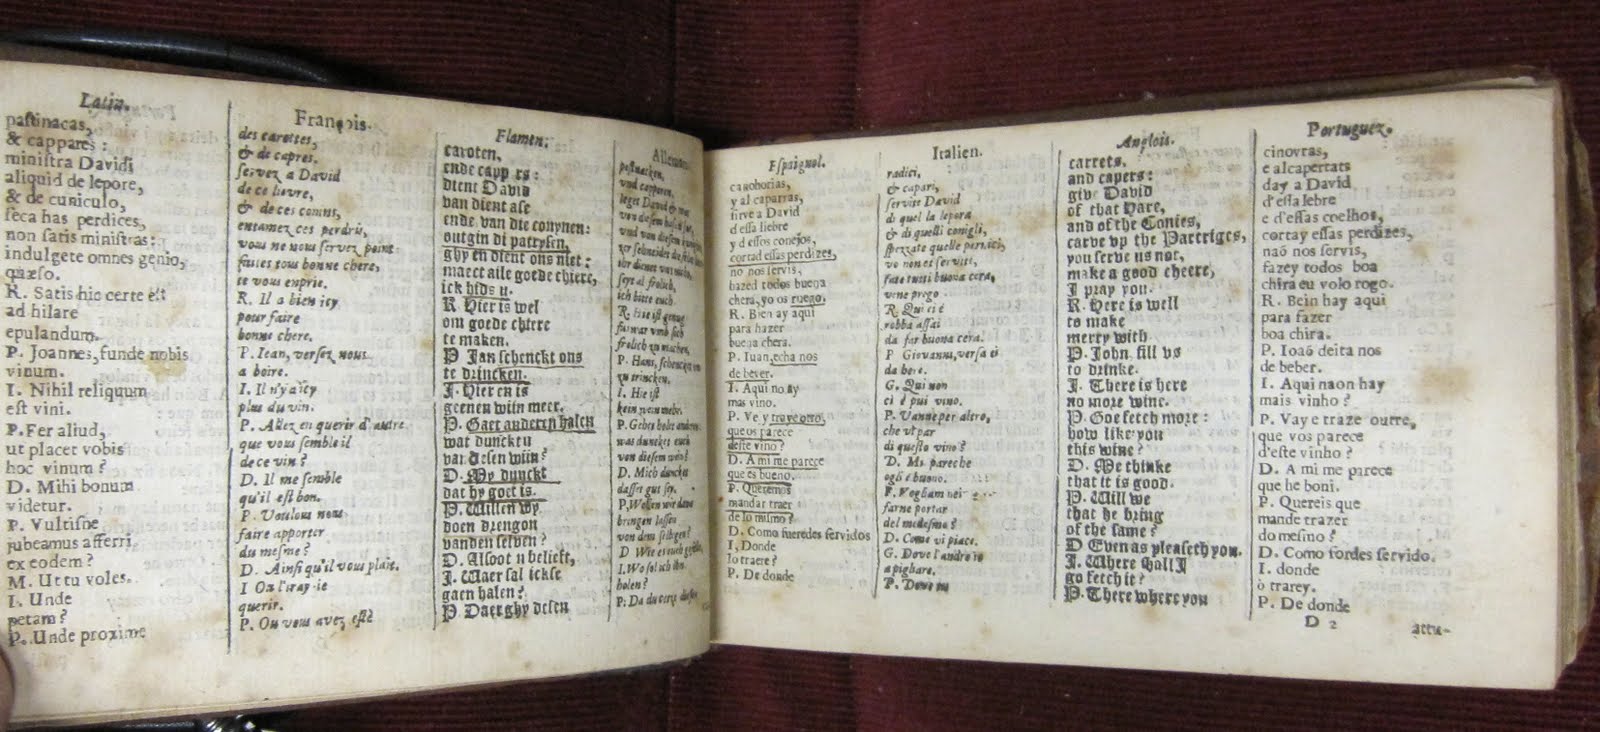 Latin.
pastinacas,
& cappares :
ministra Davidi
aliquid de lepore,
& de cuniculo,
seca has perdices,
non satis ministras :
indulgete omnes genio,
quæso.
R. Satis hic certe est
ad hilare
epulandum.
P. Joannes, funde nobis
vinum.
I. Nihil reliquum
est vini.
P. Fer aliud,
ut placet vobis
hoc vinum ?
D. Mihi bonum
videtur.
P. Vultisne
jubeamus afferri
ex eodem ?
M. Ut tu voles.
I. Unde
petam ?
P. Unde proxime
François.
des carottes,
& de capres.
servez a David
de ce lievre,
& de ces conins,
entamez ces perdris,
vous ne nous servez point
faites tous bonne chere,
te vous enprie.
R. Il a bien icy
pour faire
bonne chere.
P. Iean, versez nous
a boire.
I. Il n'y a icy
plus du vin.
P. Allez en querir d'autre
que vous semble il
de ce vin ?
D. Il me semble
qu'il est bon.
P. Voulons nous
faire apporter
du mesme ?
D. Ainsi qu'il vous plait.
I Ou l'iray-ie
querir.
P. Ou vous avez esté
Flamen:
caroten,
ende capp rs :
dient David
van dient ase
ende van die conynen:
outgin di patrysen,
ghy en dient ons niet :
maect alle goede chiere,
ick bids u.
R. Hier is wel
om goede chiere
te maken.
P. Jan schenckt ons
te drincken.
J. Hier en is
geenen wijn meer.
P. Gaet anderen halen
wat duncken
van desen wijn ?
D. My dunckt
dat hy goet is.
P. Willen wy
doen brengon
vanden selven ?
D. Alsoot u belieft,
J. Waer sal ickse
gaen halen ?
P. Daer ghy desen
Alleman
pestnacken,
und capperen,
leget David
von diesem
und von diesem
zer schneidet die
ihr dienet uns nicht,
seyt al frolich,
ich bitte euch.
R. Hie ist genug
furwar umb sich
frolich zu machen,
P. Hans, schencket uns
zu trincken.
I. Hie ist
kein wein mehr.
P. Gehet holet anderen
was duncket euch
von diesem wein ?
D. Mich duncket
dasser gut sey.
P. Wollen wir dann
bringen lassen
von dem selbigen ?
D Wie es euch
I. Wo sol ich ihn
holen ?
P: Da du
Espaignol.
canohorias,
y al caparras,
sirve a David
d essa liebre
y d essos conejos,
cortad essas perdizes,
no nos servis,
hazed todos buena
chera, yo os ruego.
R. Bien ay aqui
para hazer
buena chera.
P. Iuan, echa nos
de bever.
I. Aqui no ay
mas vino.
P. Ve y traye otro,
que os parece
deste vino ?
D. A mi me parece
que es bueno.
P. Queremos
mandar traer
de lo mismo ?
D. Como fueredes servidos
I, Donde
lo traere ?
P. De donde
Italien.
radici,
& capari,
servite David
di quel la lepora
& di quelli conigli,
spezzate quelle pernici,
vo non et serviti,
fate tutti buona cera,
vene prego.
R. Qui ci é
robba assai
da far buona cera.
P Giovanni, versa ci
da bere.
G. Qui non
ci é pui vino.
P. Vanne per altro,
che vi par
di questo vino ?
D. Mi pareche
egli è buono.
P. Vogliam noi
farne portar
del medesmo ?
D. Come vi piace.
G. Dove l'andro io
a pigliare.
P. Dove tu
Anglois.
carrets,
and capers :
give David
of that Hare,
and of the Conies,
carve up the Partriges,
you serve us not,
make a good cheere,
I pray you.
R. Here is well
to make
merry with.
P. John, fill us
to drinke.
J. There is here
no more wine.
P. Goe fetch more :
how like you
this wine ?
D. Me thinke
that it is good.
P. Will we
that he bring
of the same ?
D. Even as pleaseth you.
J. Where shall J
go fetch it ?
P. There where you
Portuguez.
cinovras,
e alcapertats
day a David
d'essa lebre
e d'essas coelhos,
cortay essas perdizes,
naó nos servis,
fazey todos boa
chira eu volo rogo.
R. Bein hay aqui
para fazer
boa chira.
P. Ioaó deita nos
de beber.
I. Aqui naon hay
mais vinho ?
P. Vay e traze outre,
que vos parece
d'este vinho ?
D. A mi me parece
que he boni.
P. Quereis que
mande trazer
do mesino ?
D. Como fordes servido.
I. donde
ò trarey.
P. De donde
D 2
attu-